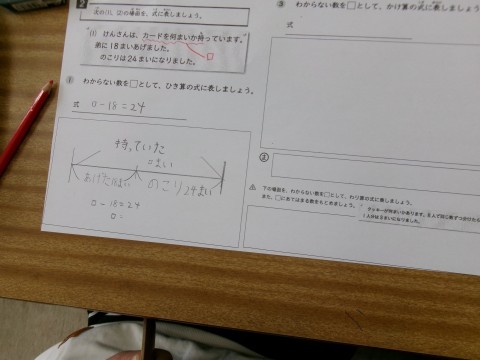 2
次の(1)、(2)の場面を、式に表しましょう。
(1) けんさんは、カードを何まいか持っています。
弟に18まいあげました。
のこりは24まいになりました。
□
① わからない数を□として、ひき算の式に表しましょう。
式 0-18=24
持っていた
=まい
あげた18まい のこり24まい
0-18=24
0=
③ わからない数を□として、かけ算の式に表しましょう。
式
②
⚠ 下の場面を、わからない数を□として、わり算の式に表しましょう。
また、□にあてはまる数をもとめましょう。
クッキーが何まいかあります。
1人分は3まいになりました。